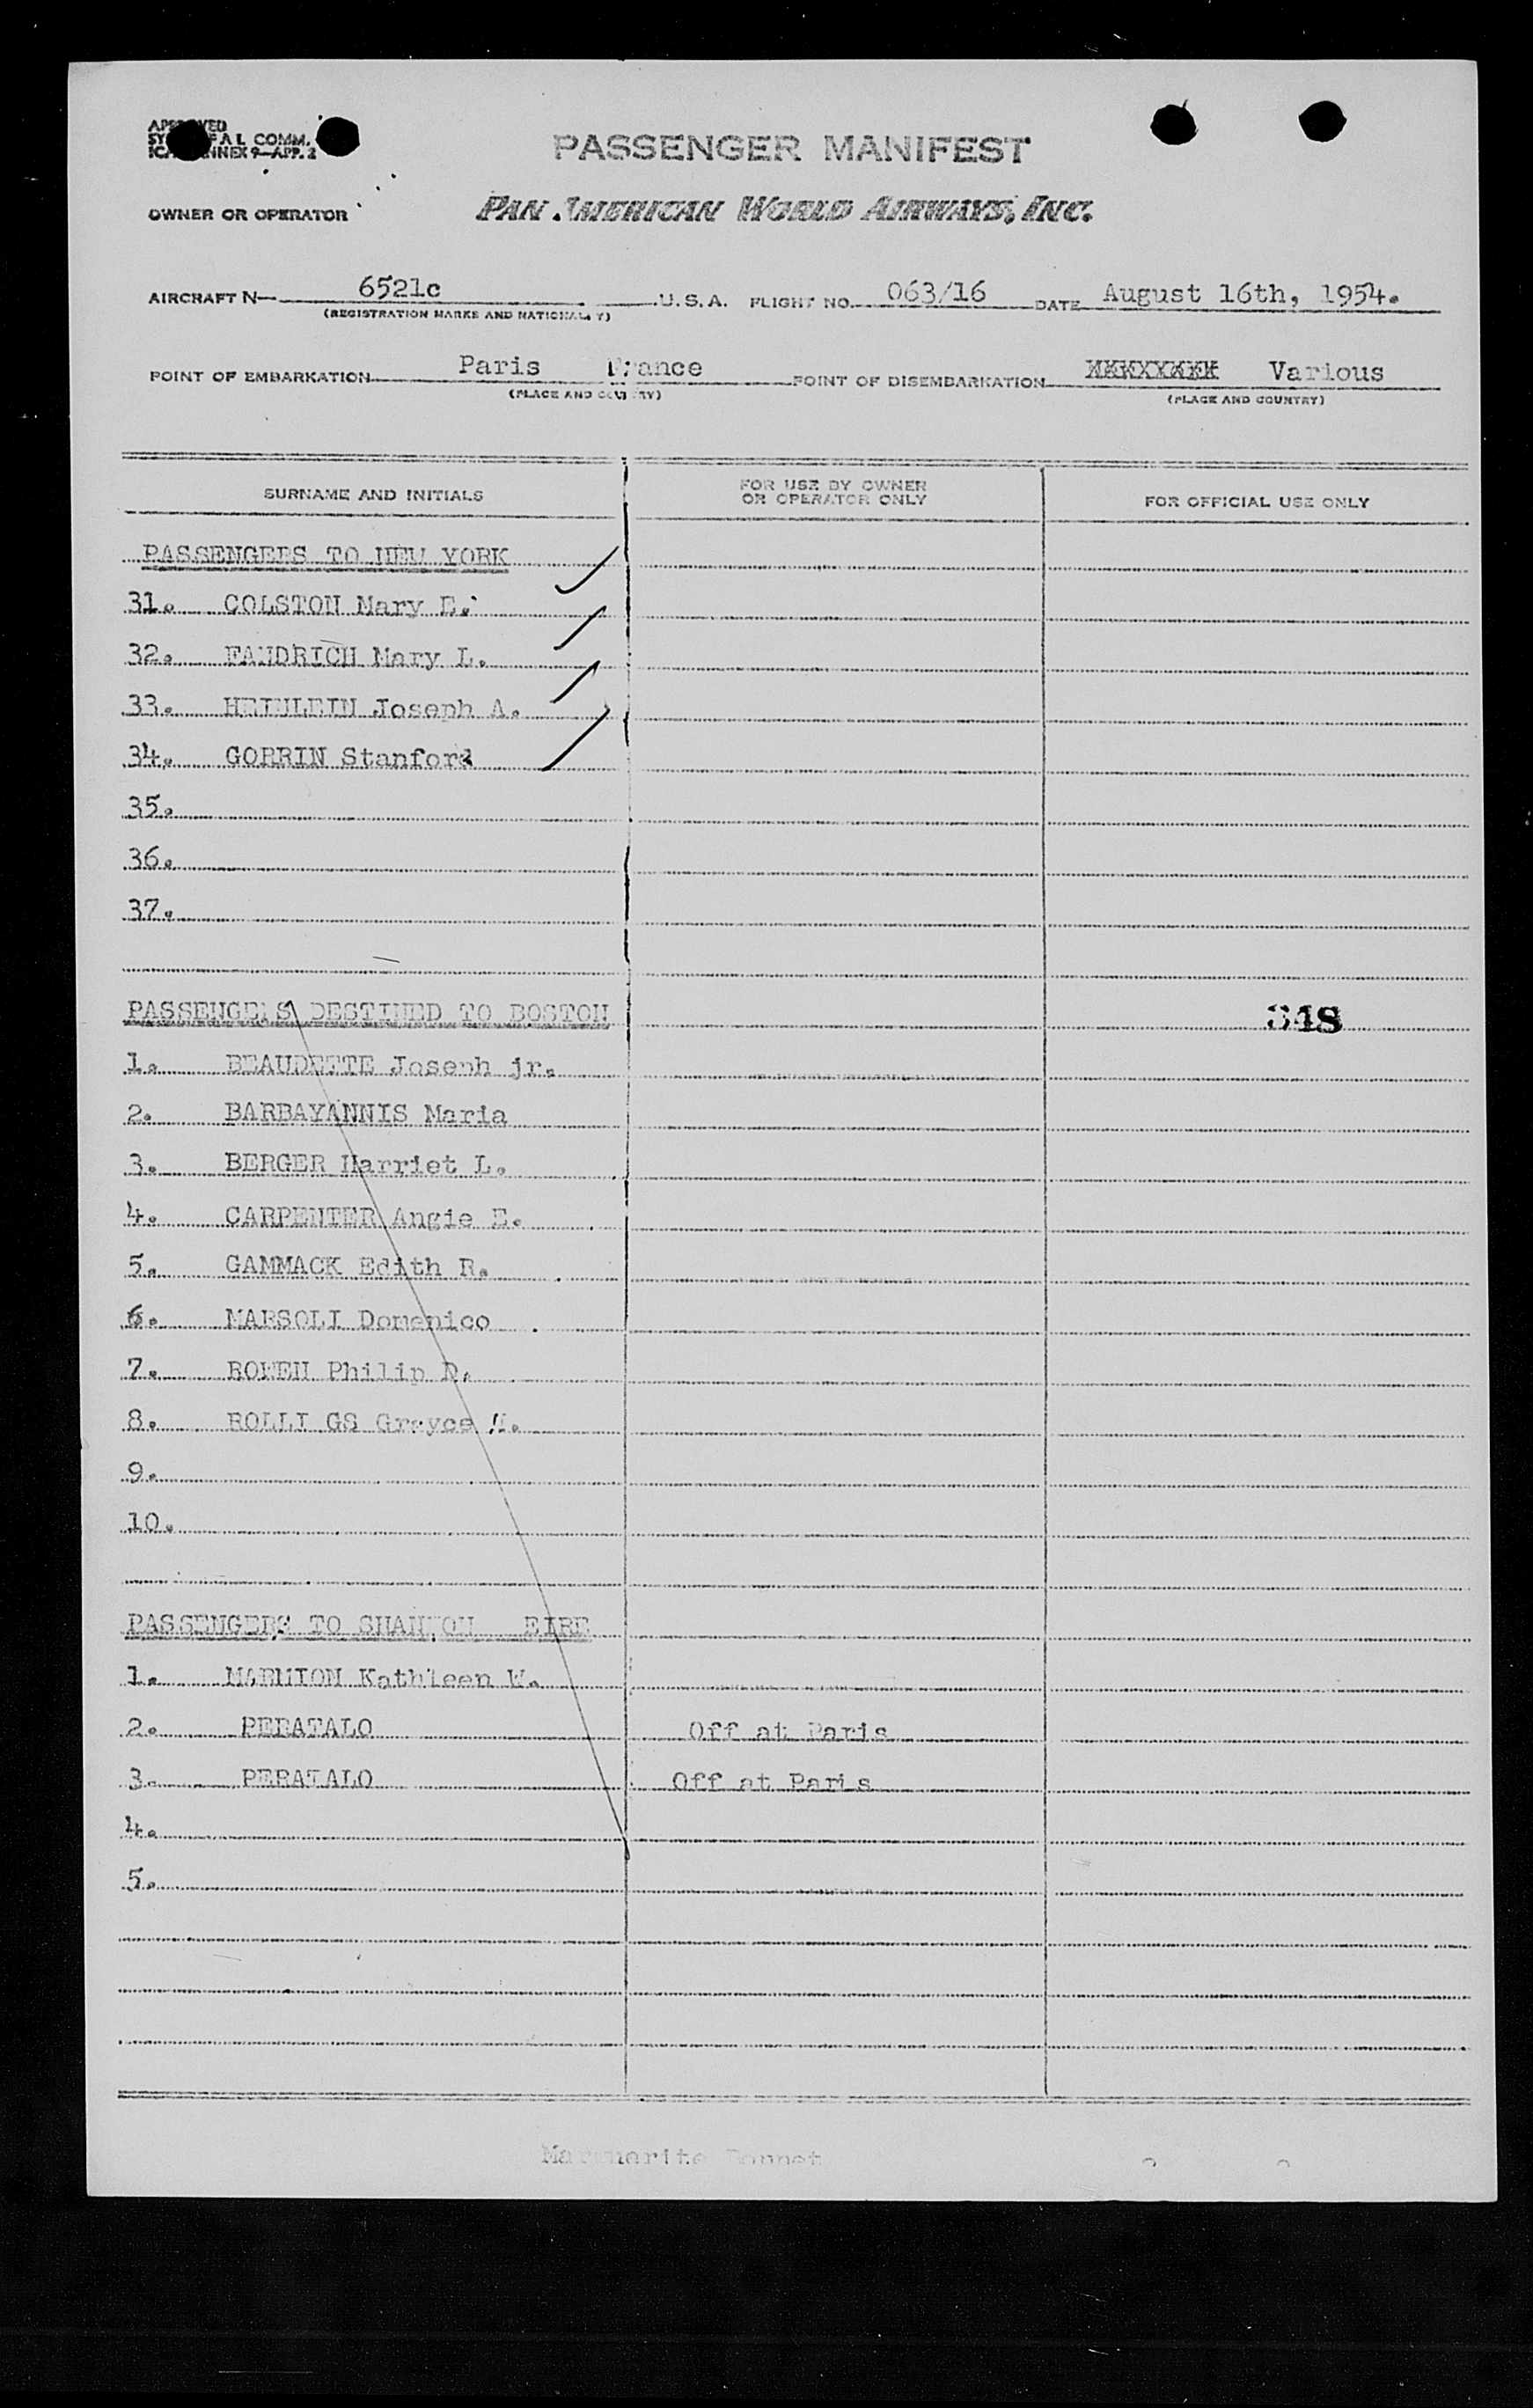 PASSENGER MANIFEST
OWNER OR OPERATOR PAN AMERICAN WORLD AIRWAYS, INC.
AIRCRAFT N— 6521c U.S.A. FLIGHT NO. 063/16 DATE August 16th, 1954.
(REGISTRATION MARKS AND NATIONALITY)
POINT OF EMBARKATION Paris France POINT OF DISEMBARKATION Various
(PLACE AND COUNTRY) (PLACE AND COUNTRY)
SURNAME AND INITIALS FOR USE BY OWNER OR OPERATOR ONLY FOR OFFICIAL USE ONLY
PASSENGERS TO NEW YORK
31. COLSTON Mary E.
32. FAUDRICH Mary L.
33. Joseph A.
34. GORRIN Stanford
35.
36.
37.
PASSENGERS DESTINED TO BOSTON 348
1. BEAUDETTE Joseph jr.
2. BARBAYANNIS Maria
3. BERGER Harriet L.
4. CARPENTER Angie E.
5. GAMMACK Edith R.
6. MARSOLI Domenico
7. Philip
8. GS Grayce
9.
10.
PASSENGERS TO SHANNON EIRE
1. MARMION Kathleen W.
2. PERATALO Off at Paris
3. PERATALO Off at Paris
4.
5.